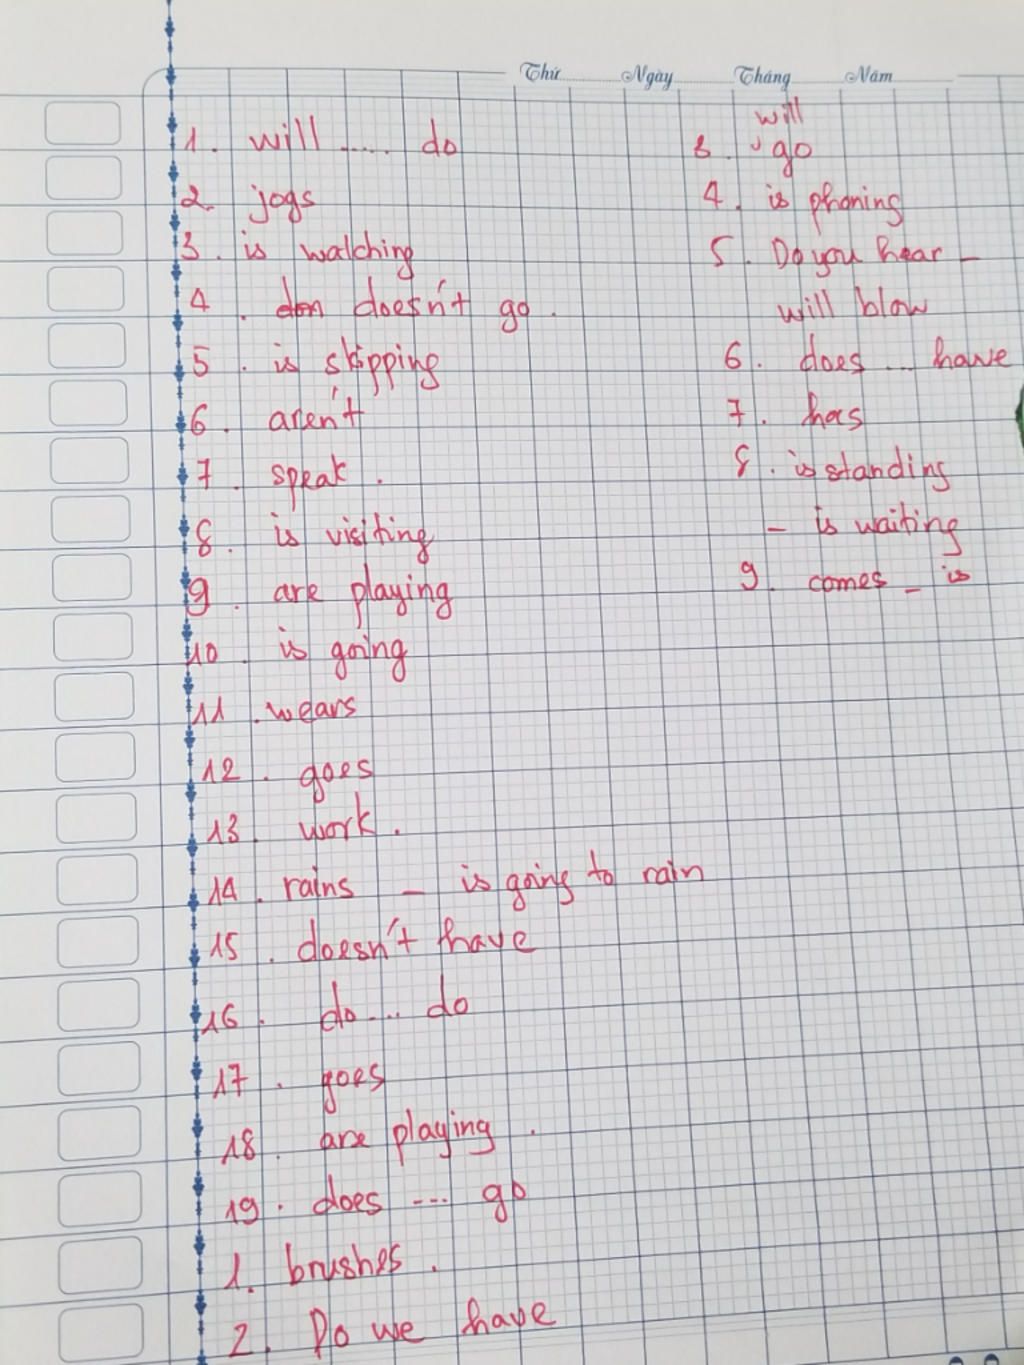 Thứ Ngày Tháng Năm
1. will ..... do
2. jogs
3. is watching
4. don doesn't go.
5. is skipping
6. aren't
7. speak.
8. is visiting
9. are playing
10. is going
11. wears
12. goes
13. work.
14. rains - is going to rain
15. doesn't have
16. do ... do
17. goes
18. are playing.
19. does ... go
1. brushes.
2. Do we have
3. will go
4. is phoning
5. Do you hear -
will blow
6. does ... have
7. has
8. is standing
- is waiting
9. comes - is